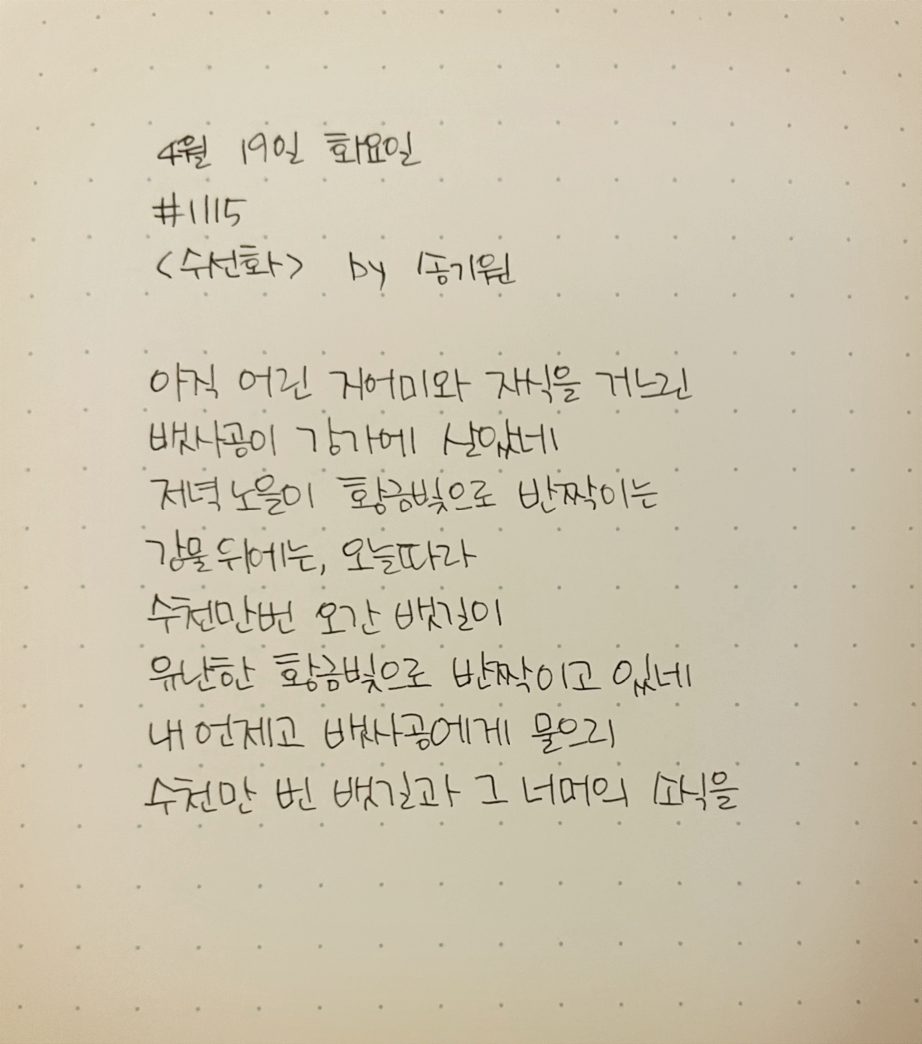 4월 19일 화요일
#1115
<수선화> by 송기원
아직 어린 지어미와 자식을 거느린
뱃사공이 강가에 살았네
저녁노을이 황금빛으로 반짝이는
강물 위에는, 오늘따라
수천만번 오간 뱃길이
유난한 황금빛으로 반짝이고 있네
내 언제고 뱃사공에게 물으리
수천만 번 뱃길과 그 너머의 소식을